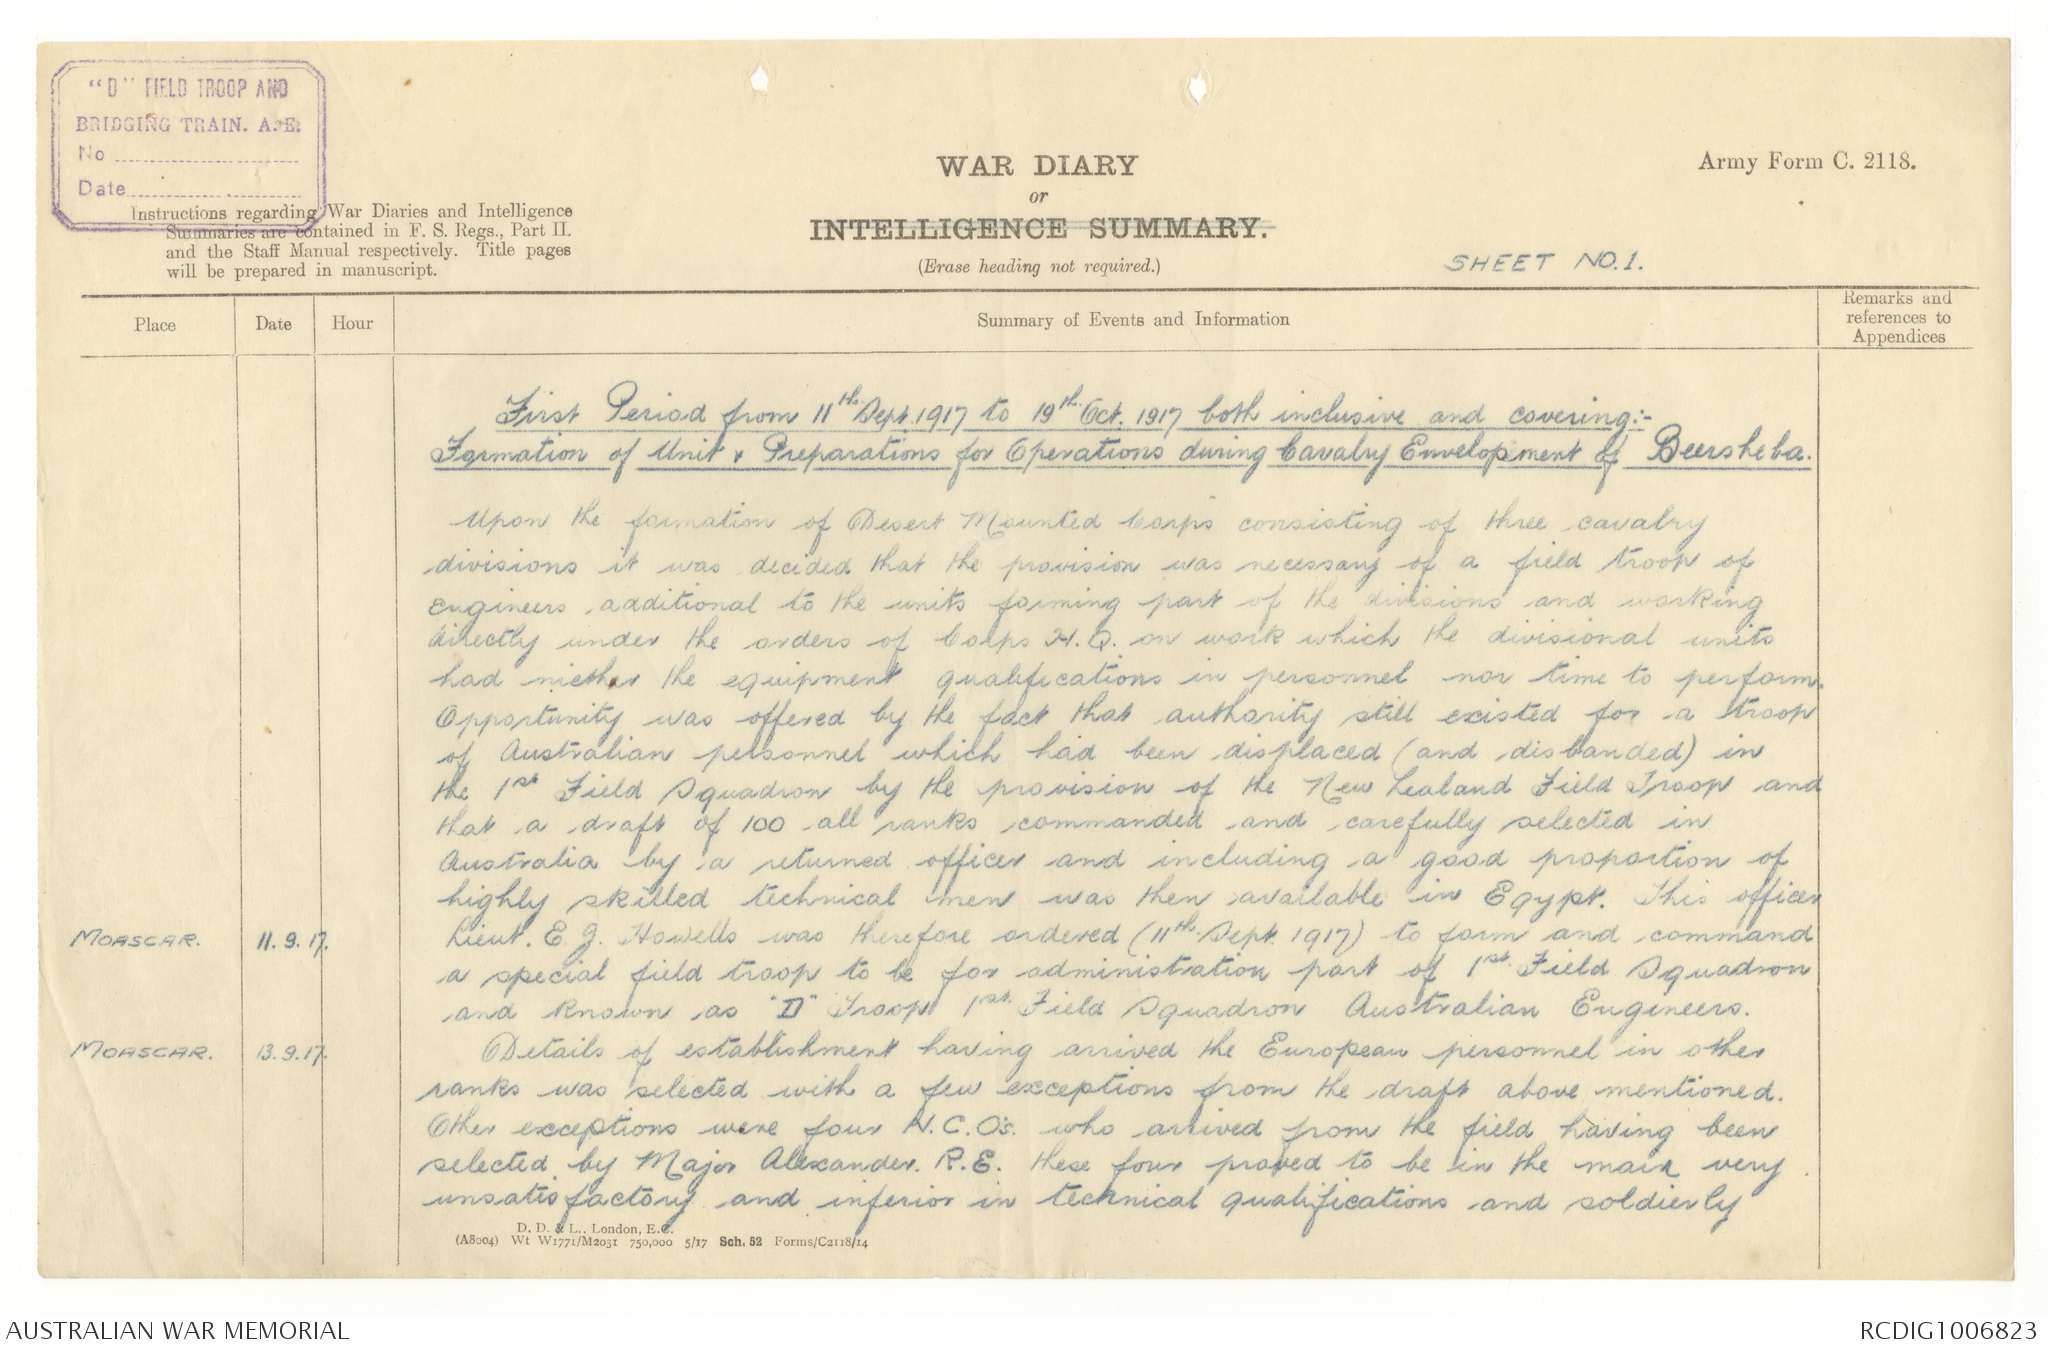 "D" FIELD TROOP AND
BRIDGING TRAIN. A.E.
No
Date
Instructions regarding War Diaries and Intelligence
Summaries are contained in F. S. Regs., Part II.
and the Staff Manual respectively. Title pages
will be prepared in manuscript.
WAR DIARY
or
INTELLIGENCE SUMMARY.
(Erase heading not required.)
Army Form C. 2118.
SHEET NO. 1.
Place
Date
Hour
Summary of Events and Information
Remarks and
references to
Appendices
First Period from 11th Sept. 1917 to 19th Oct. 1917 both inclusive and covering:-
Formation of Unit & Preparations for Operations during Cavalry Envelopment of Beersheba.
Upon the formation of Desert Mounted Corps consisting of three cavalry
divisions it was decided that the provision was necessary of a field troop of
engineers additional to the units forming part of the divisions and working
directly under the orders of Corps H.Q. on work which the divisional units
had niether the equipment qualifications in personnel nor time to perform.
Opportunity was offered by the fact that authority still existed for a troop
of Australian personnel which had been displaced (and disbanded) in
the 1st Field Squadron by the provision of the New Zealand Field Troop and
that a draft of 100 all ranks commanded and carefully selected in
Australia by a returned officer and including a good proportion of
highly skilled technical men was then available in Egypt. This officer
MOASCAR. 11.9.17. Lieut. E. J. Howells was therefore ordered (11th Sept. 1917) to form and command
a special field troop to be for administration part of 1st Field Squadron
and known as "D" Troop 1st Field Squadron Australian Engineers.
MOASCAR. 13.9.17. Details of establishment having arrived the European personnel in other
ranks was selected with a few exceptions from the draft above mentioned.
Other exceptions were four N.C.O's. who arrived from the field having been
selected by Major Alexander. R.E. these four proved to be in the main very
unsatisfactory and inferior in technical qualifications and soldierly
D. D. & L., London, E.C.
(A8004) Wt W1771/M2031 750,000 5/17 Sch. 52 Forms/C2118/14
AUSTRALIAN WAR MEMORIAL
RCDIG1006823